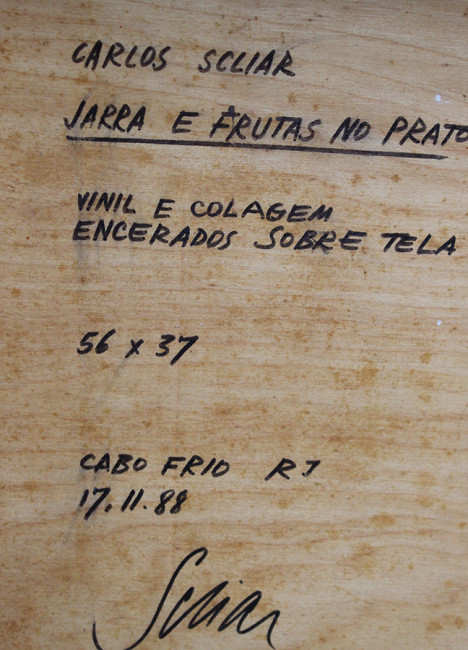 CARLOS SCLIAR
JARRA E FRUTAS NO PRATO
VINIL E COLAGEM
ENCERADOS SOBRE TELA
56 x 37
CABO FRIO RJ
17.11.88
Scliar